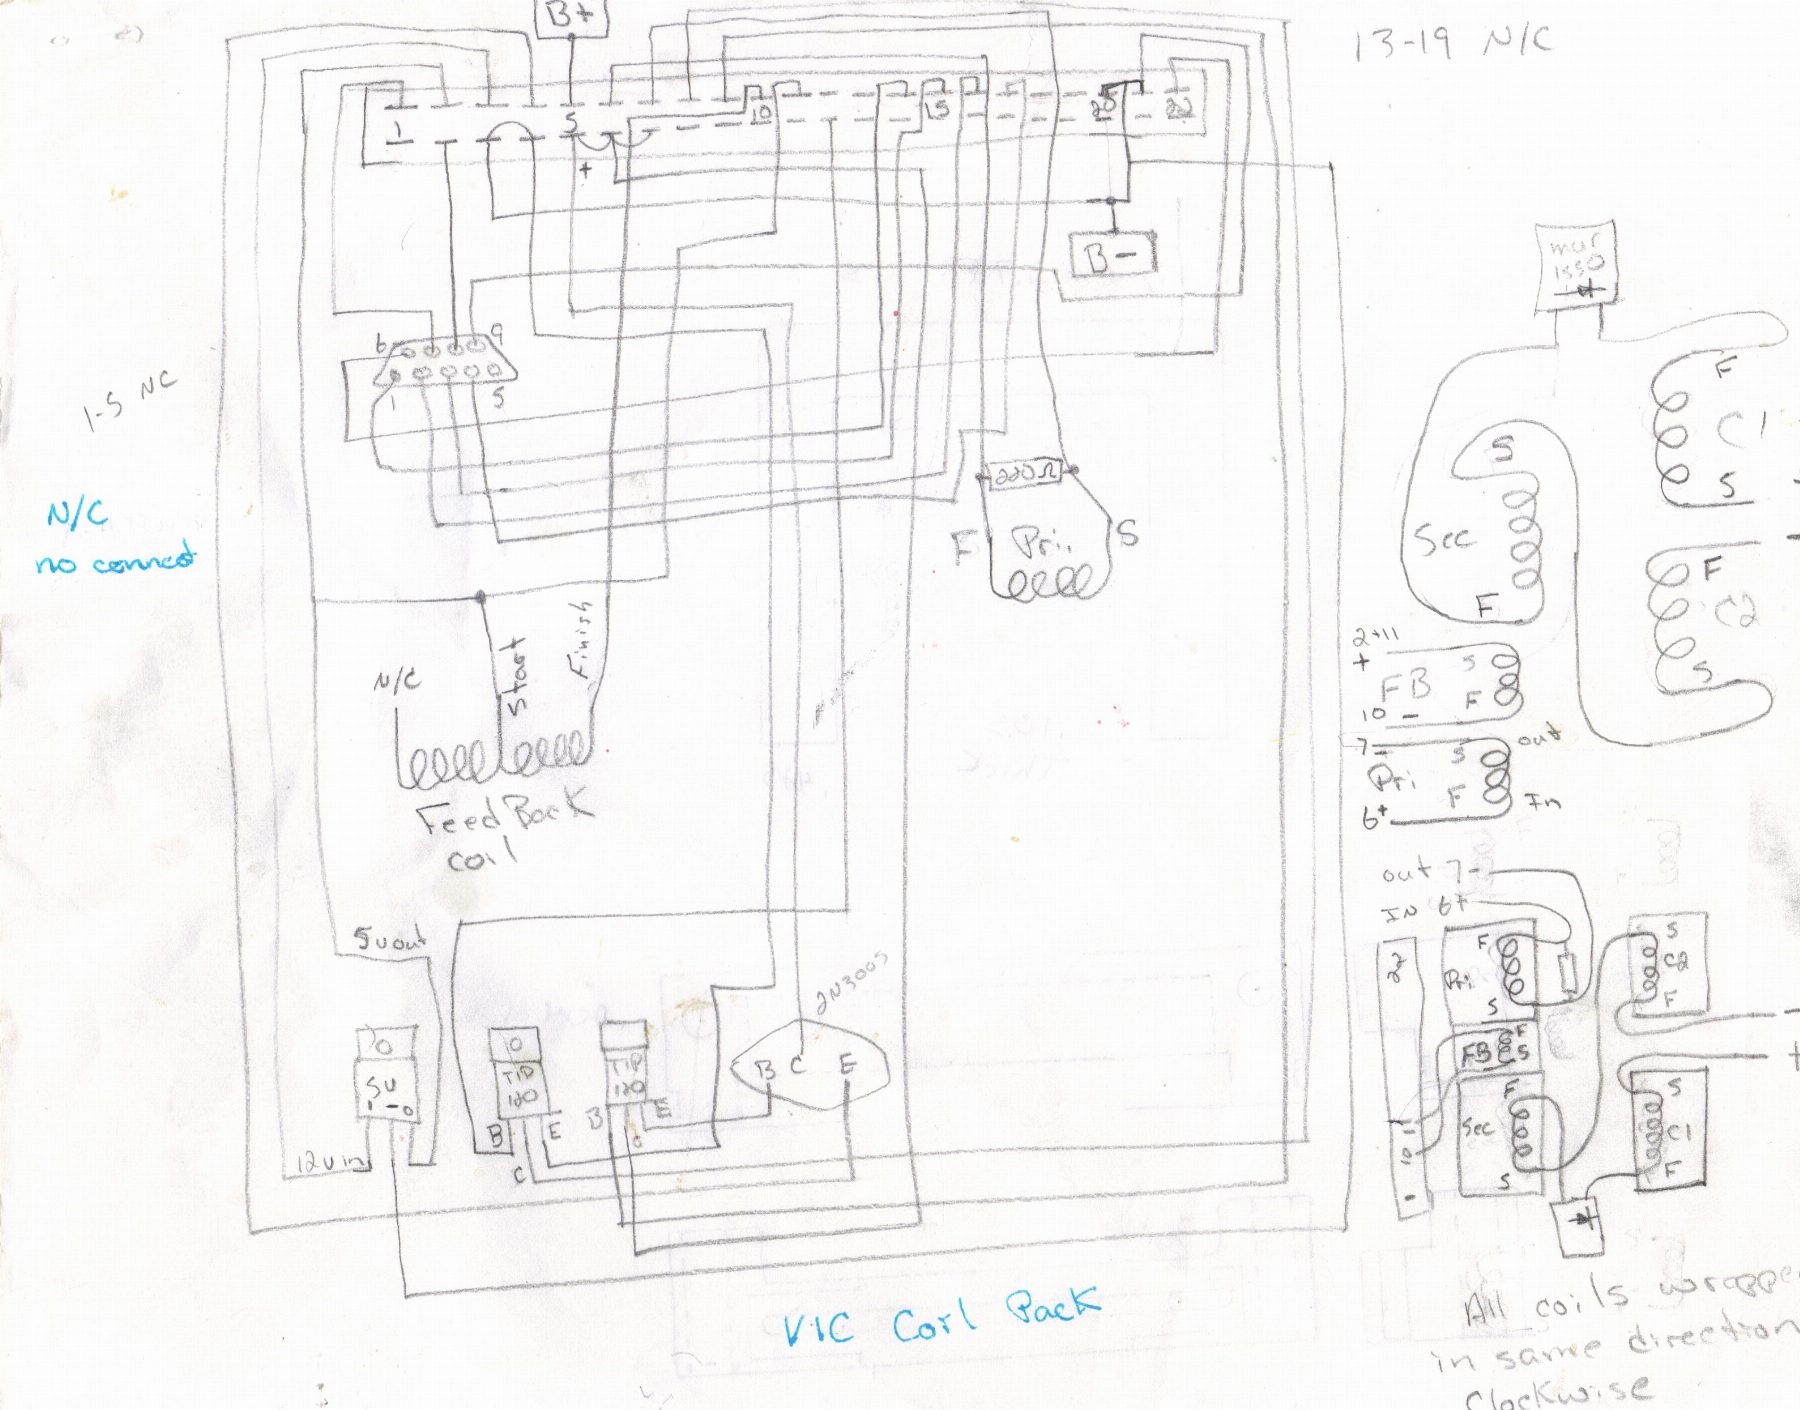 B+
13-19 N/C
1
5
10
15
20
22
+
B-
mur
1550
6
9
1
5
1-5 NC
N/C
no connect
220Ω
F
Pri.
S
F
C1
S
S
Sec
F
F
C2
S
N/C
Start
Finish
FeedBack
coil
2+11
+
S
FB
F
10 -
7-
S
out
Pri
F
In
6+
out 7-
IN 6+
22
F
Pri
S
S
C2
F
-
F
FB
S
+
F
Sec
S
S
C1
F
11
10
5v out
2N3005
0
5v
0
TIP
120
TIP
120
B C E
B
E
C
B
E
C
12v in
VIC Coil Pack
All coils wrappe
in same direction
Clockwise